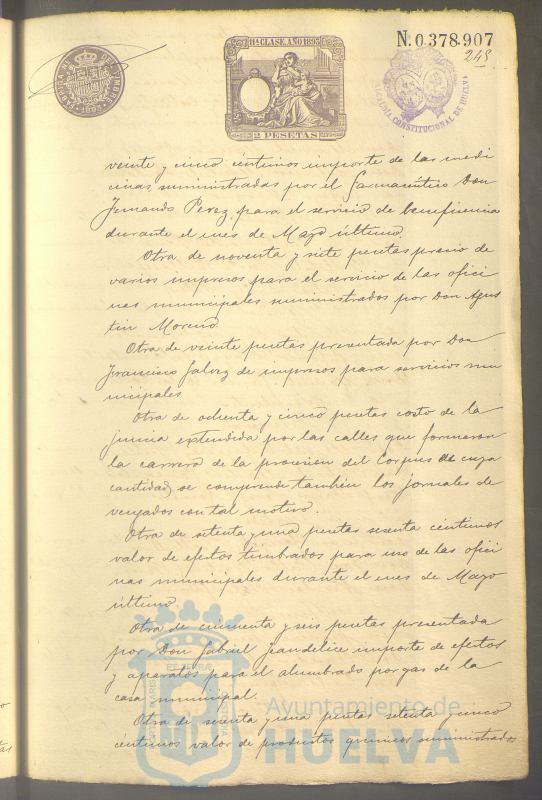 N. 0.378.907
245
11ª CLASE. AÑO 1895
2 PESETAS
ALCALDIA CONSTITUCIONAL DE HUELVA
veinte y cinco céntimos importe de las medi
cinas suministradas por el farmacéutico Don
Fernando Perez para el servicio de beneficencia
durante el mes de Mayo último.
Otra de noventa y siete pesetas precio de
varios impresos para el servicio de las ofici
nas municipales suministrados por Don Agus
tin Moreno
Otra de veinte pesetas presentada por Don
Francisco Galvez de impresos para servicios mu
nicipales
Otra de ochenta y cinco pesetas costo de la
juncia extendida por las calles que formaron
la carrera de la procesion del Corpus de cuya
cantidad se comprende también los jornales de
vengados con tal motivo.
Otra de setenta y una pesetas sesenta céntimos
valor de efectos timbrados para uso de las ofici
nas municipales durante el mes de Mayo
último
Otra de cincuenta y seis pesetas presentada
por Don Gabriel Jeandelice importe de efectos
y aparatos para el alumbrado por gas de la
casa municipal.
Otra de sesenta y una pesetas setenta y cinco
céntimos valor de productos quimicos suministrados
Ayuntamiento de
HUELVA